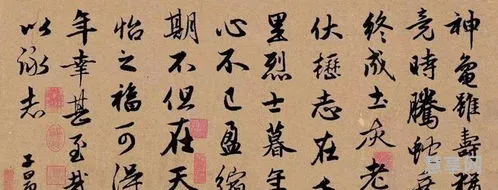 神龜雖壽猶
竟時騰蛇
終成土灰老
伏櫪志在千
里烈士暮年
心不已盈縮
期不但在天
怡之福可得
年幸甚至哉
以詠志
子昂